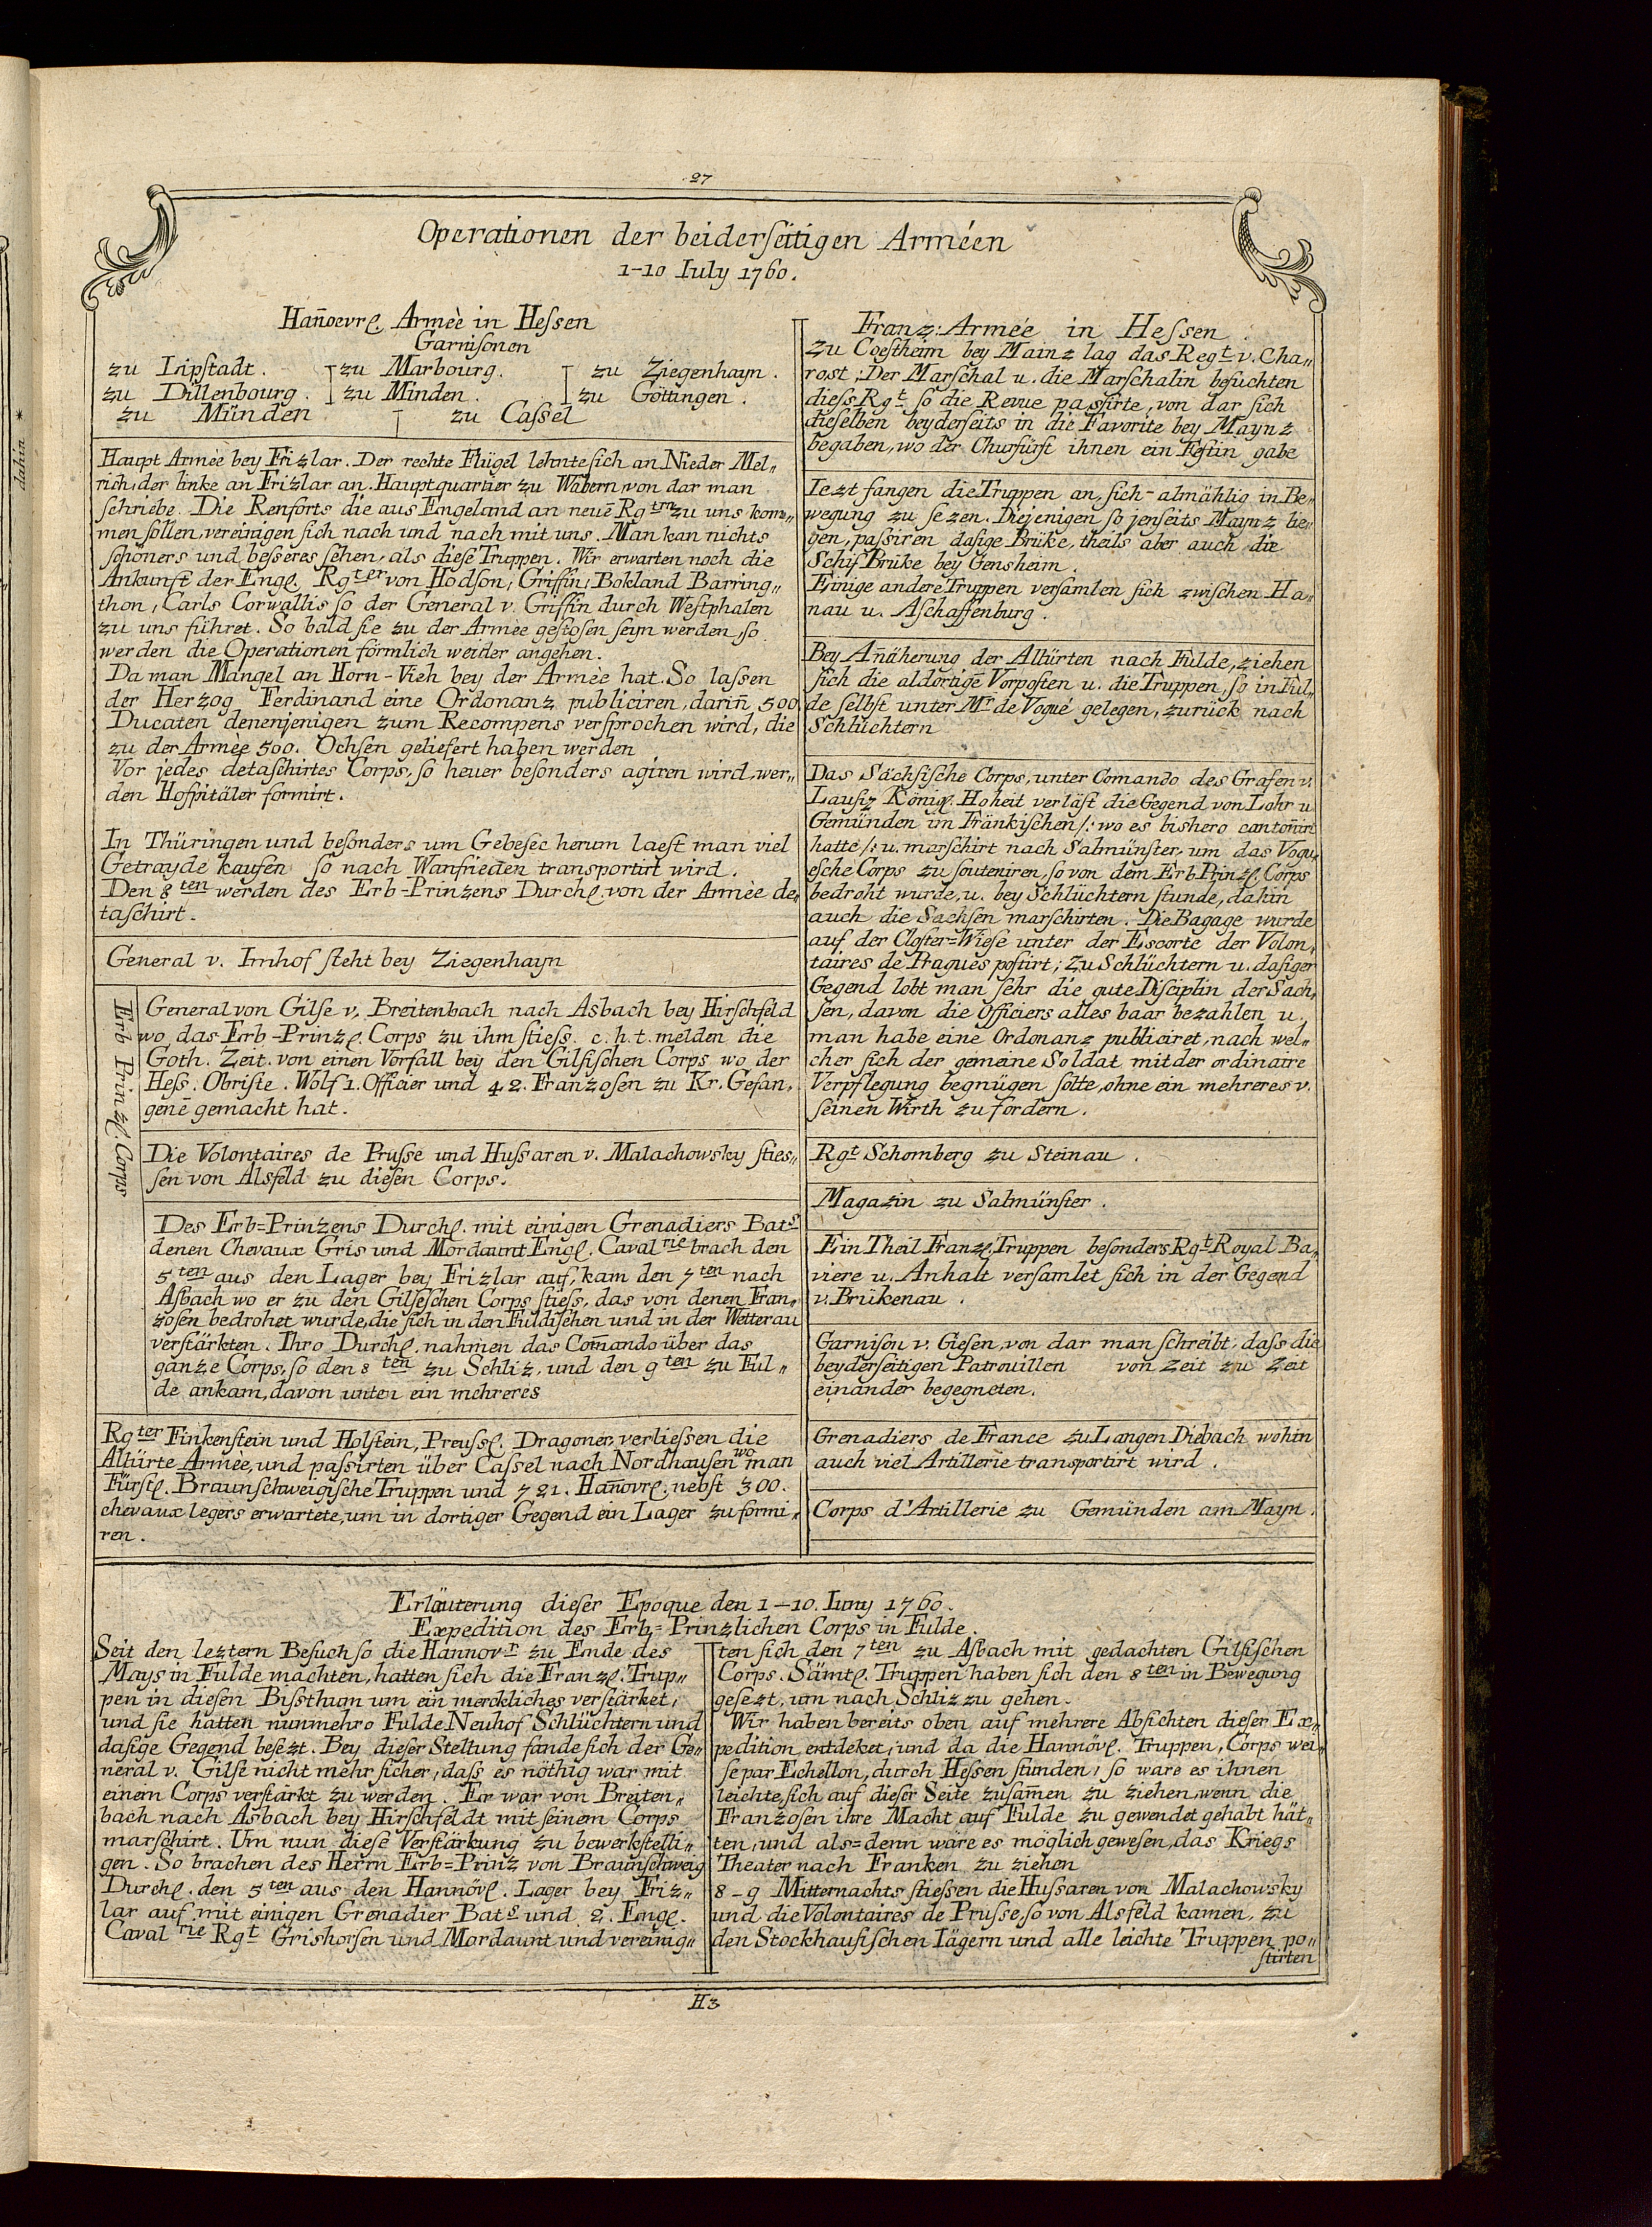 27
Operationen der beiderſeitigen Arméen
1-10 Iuly 1760.
Han̄oevrl. Armèe in Heſsen
Garniſonen
zu Lipſtadt. zu Marbourg. zu Ziegenhayn.
zu Dillenbourg. zu Minden. zu Göttingen.
zu Münden zu Caſsel
Haupt Armèe bey Frizlar. Der rechte Flügel lehnte ſich an Nieder Mel„
rich, der linke an Frizlar an. Hauptquartier zu Wabern, von dar man
ſchriebe. Die Renforts die aus Engeland an neuē Rgtrn zu uns kom„
men ſollen, vereinigen ſich nach und nach mit uns. Man kan nichts
ſchöners und beſseres ſehen, als dieſe Truppen. Wir erwarten noch die
Ankunft der Engl. Rgter von Hodſon, Griffin, Bokland Barring„
thon, Carls Corwallis ſo der General v. Griffin durch Weſtphalen
zu uns führet. So bald ſie zu der Armèe geſtoſen ſeyn werden, ſo
werden die Operationen förmlich weider angehen.
Da man Mangel an Horn-Vieh bey der Armèe hat. So laſsen
der Herzog Ferdinand eine Ordonanz publiciren, darin̄ 500
Ducaten denenjenigen zum Recompens verſprochen wird, die
zu der Armèe 500. Ochſen geliefert haben werden
Vor jedes detaſchirtes Corps, ſo heuer beſonders agiren wird, wer„
den Hoſpitäler formirt.
In Thüringen und beſonders um Gebeſee herum laeſt man viel
Getrayde kaufen ſo nach Wanfrieden transportirt wird.
Den 8ten werden des Erb-Prinzens Durchl. von der Armèe de„
taſchirt.
General v. Imhof ſteht bey Ziegenhayn
Erb Prinzl. Corps
General von Gilſe v. Breitenbach nach Asbach bey Hirſchfeld
wo das Erb-Prinzl. Corps zu ihm ſtieſs. c.h.t. melden die
Goth. Zeit. von einen Vorfall bey den Gilſiſchen Corps wo der
Heſs. Obriſte. Wolf 1. Officier und 42. Franzosen zu Kr. Gefan„
genē gemacht hat.
Die Volontaires de Pruſse und Huſsaren v. Malachowsky ſtieſ„
ſen von Alsfeld zu dieſen Corps.
Des Erb=Prinzens Durchl. mit einigen Grenadiers Bats
denen Chevaux Gris und Mordaunt Engl. Cavalrie brach den
5ten aus den Lager bey Frizlar auf, kam den 7ten nach
Aſbach wo er zu den Gilſeſchen Corps ſtieſs, das von denen Fran„
zoſen bedrohet wurde, die ſich in den Fuldiſchen und in der Wetterau
verſtärkten. Ihro Durchl. nahmen das Com̄ando über das
ganze Corps, ſo den 8ten zu Schliz, und den 9ten zu Ful„
de ankam, davon unten ein mehreres
Rgter Finkenſtein und Holſtein, Preuſsl. Dragoner, verlieſsen die
Allürte Armèe, und paſsirten über Caſsel nach Nordhauſen wo man
Fürſtl. Braunſchweigiſche Truppen und 721. Han̄ovrl. nebſt 300.
chevaux legers erwartete, um in dortiger Gegend ein Lager zu formi„
ren.
Franz: Armée in Heſsen
Zu Coeſtheim bey Mainz lag das Regt v. Cha„
rost; Der Marſchal u. die Marſchalin beſuchten
dieſs Rgt ſo die Revue paſsirte, von dar ſich
dieſelben beyderſeits in die Favorite bey Maynz
begaben, wo der Churfürſt ihnen ein Feſtin gabe
Iezt fangen die Truppen an, ſich almählig in Be„
wegung zu ſezen. Diejenigen ſo jenſeits Maynz lie„
gen, paſsiren daſige Brüke, theils aber auch die
Schif Brüke bey Gensheim.
Einige andere Truppen verſamlen ſich zwiſchen Ha„
nau u. Aſchaffenburg.
Bey An̄äherung der Allürten nach Fulde, ziehen
ſich die aldortigē Vorpoſten u. die Truppen, ſo in Ful„
de ſelbſt unter Mr de Vogué gelegen, zurück nach
Schlüchtern
Das Sächſiſche Corps, unter Comando des Grafen v.
Lauſiz Königl. Hoheit verläſt die Gegend von Lohr u
Gemünden im Fränkiſchen /: wo es bishero canton̄irt
hatte /: u. marſchirt nach Salmünſter, um das Vogu„
eſche Corps zu ſouteniren, ſo von dem Erb Prinzl. Corps
bedroht wurde, u. bey Schlüchtern ſtunde, dahin
auch die Sachſen marſchirten. Die Bagage wurde
auf der Cloſter=Wieſe unter der Escorte der Volon„
taires de Pragues poſtirt; Zu Schlüchtern u. daſiger
Gegend lobt man ſehr die gute Diſciplin der Sach„
ſen, davon die Officiers alles baar bezahlen u.
man habe eine Ordonanz publiciret, nach wel„
cher ſich der gemeine Soldat mit der ordinaire
Verpflegung begnügen ſolte, ohne ein mehreres v.
ſeinen Wirth zu fordern.
Rgt Schomberg zu Steinau.
Magazin zu Salmünſter.
Ein Theil Franzl. Truppen beſonders Rgt Royal Ba„
viere u. Anhalt verſamlet ſich in der Gegend
v. Brükenau.
Garniſon v. Gieſen, von dar man ſchreibt, daſs die
beyderſeitigen Patrouillen von Zeit zu Zeit
einander begegneten.
Grenadiers de France zu Langen Diebach wohin
auch viel Artillerie transportirt wird.
Corps d'Artillerie zu Gemünden am Mayn.
Erläuterung dieſer Epoque den 1-10. Iuny 1760.
Expedition des Erb=Prinzlichen Corps in Fulde.
Seit den leztern Beſuch ſo die Hannovr zu Ende des
Mays in Fulde machten, hatten ſich die Franzl. Trup„
pen in dieſen Biſsthum um ein merckliches verſtärket,
und ſie hatten nunmehro Fulde Neuhof Schlüchtern und
daſige Gegend beſezt. Bey dieſer Stellung fande ſich der Ge„
neral v. Gilſe nicht mehr ſicher, daſs es nöthig war mit
einem Corps verſtärkt zu werden. Er war von Breiten„
bach nach Asbach bey Hirſchfeldt mit ſeinem Corps
marſchirt. Um nun dieſe Verſtärkung zu bewerkſtelli„
gen. So brachen des Herrn Erb=Prinz von Braunſchweig
Durchl. den 5ten aus den Hannövl. Lager bey Friz„
lar auf mit einigen Grenadier Bats und 2. Engl.
Cavalrie Rgt Grishorſen und Mordaunt und vereinig„
ten ſich den 7ten zu Aſbach mit gedachten Gilſiſchen
Corps. Sämtl. Truppen haben ſich den 8ten in Bewegung
geſezt, um nach Schliz zu gehen.
Wir haben bereits oben auf mehrere Abſichten dieſer Ex„
pedition entdeket, und da die Hannövl. Truppen, Corps wei„
ſe par Echellon, durch Heſsen ſtunden, ſo ware es ihnen
leichte, ſich auf dieſer Seite zuſam̄en zu ziehen, wenn die
Franzosen ihre Macht auf Fulde zu gewendet gehabt hät„
ten, und als=denn wäre es möglich geweſen, das Kriegs
Theater nach Franken zu ziehen
8-9 Mitternachts ſtieſsen die Huſsaren von Malachowsky
und die Volontaires de Pruſse, ſo von Alsfeld kamen, zu
den Stockhauſiſchen Iägern und alle leichte Truppen po„
ſtirten
H3
dahin *